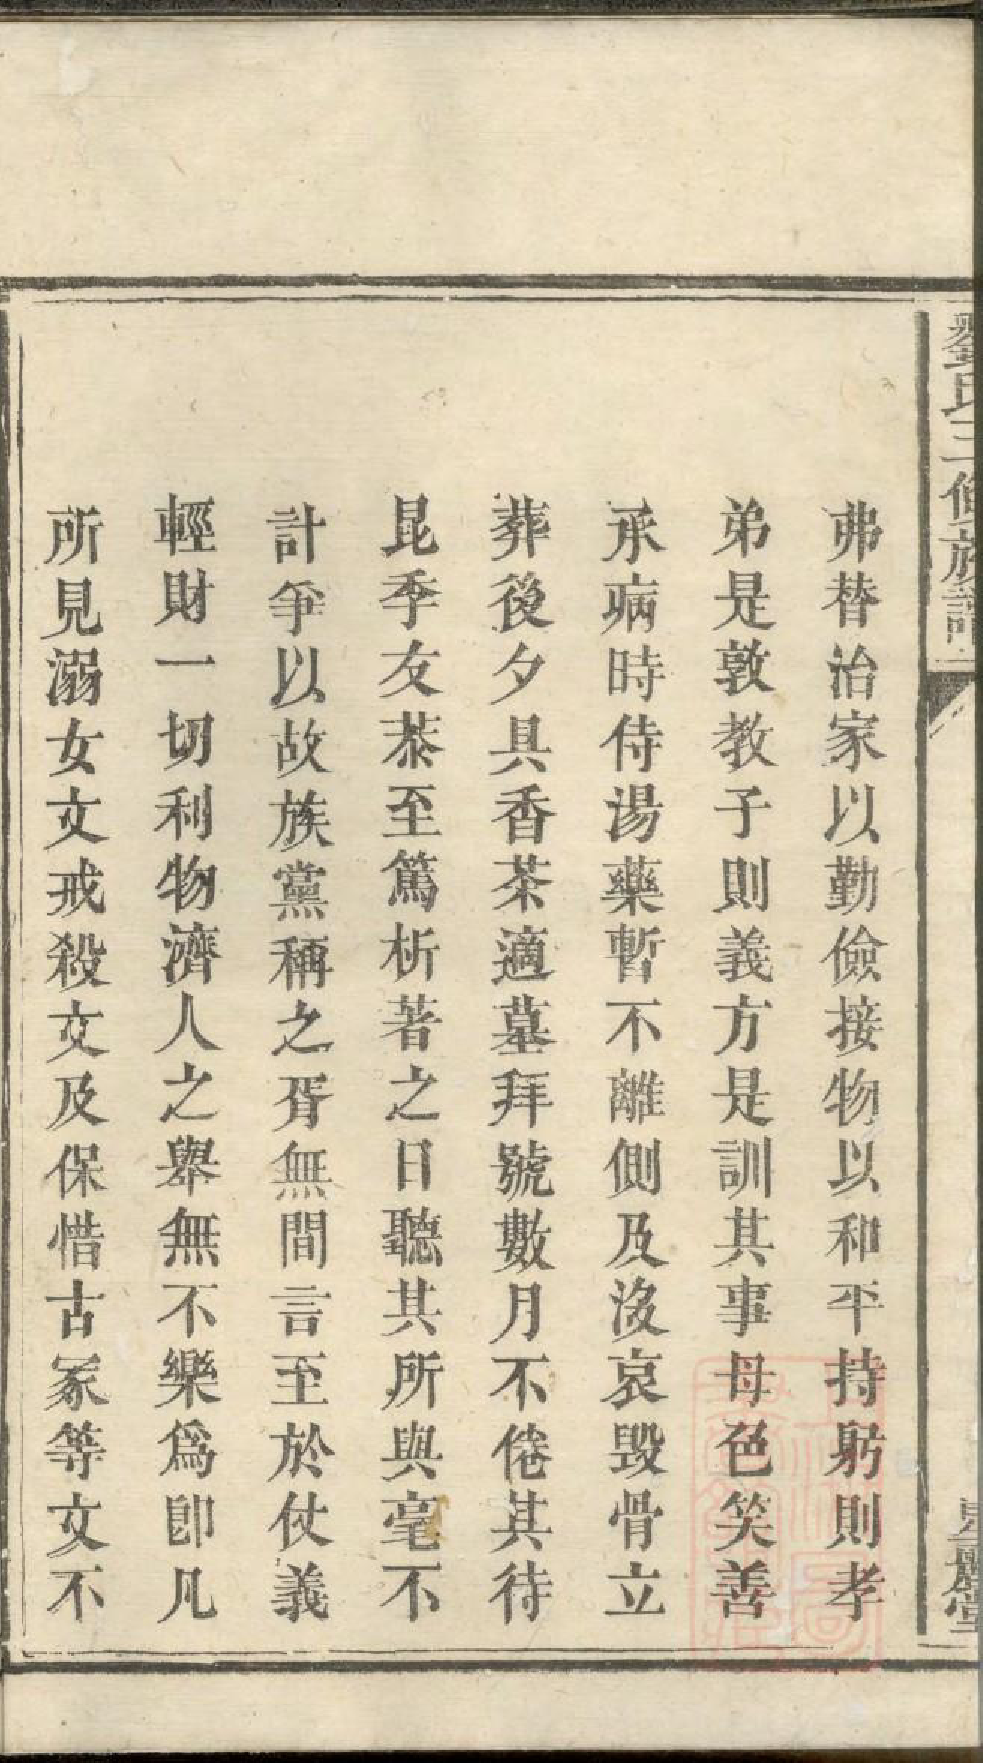 劉氏三修族譜
弗替治家以勤儉接物以和平持躬則孝
弟是敦教子則義方是訓其事母色笑善
承病時侍湯藥暫不離側及沒哀毀骨立
葬後夕具香茶適墓拜號數月不倦其待
昆季友恭至篤析著之日聽其所與毫不
計爭以故族黨稱之胥無間言至於仗義
輕財一切利物濟人之舉無不樂爲卽凡
所見溺女文戒殺文及保惜古冢等文不